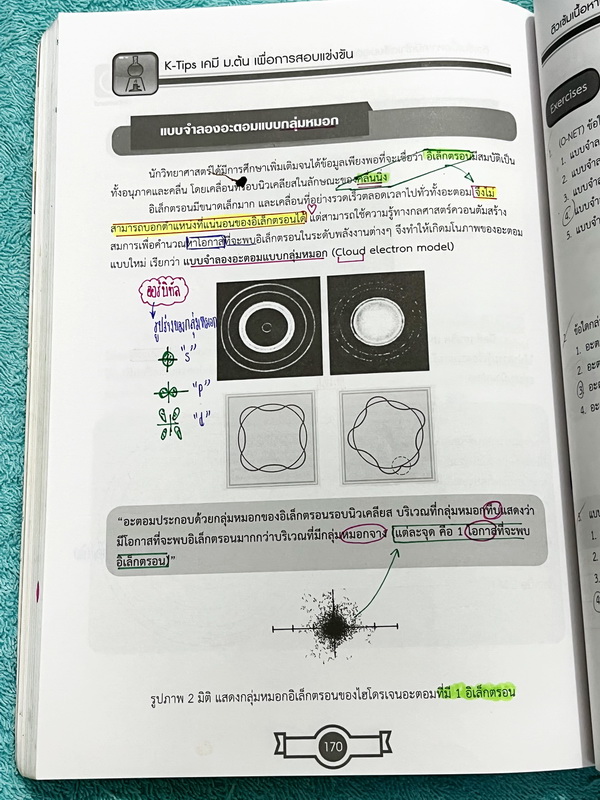 K-Tips เคมี ม.ต้น เพื่อการสอบแข่งขัน
แบบจำลองอะตอมแบบกลุ่มหมอก
นักวิทยาศาสตร์ได้มีการศึกษาเพิ่มเติมจนได้ข้อมูลเพียงพอที่จะเชื่อว่า อิเล็กตรอนมีสมบัติเป็น
ทั้งอนุภาคและคลื่น โดยเคลื่อนที่รอบนิวเคลียสในลักษณะของคลื่นนิ่ง
อิเล็กตรอนมีขนาดเล็กมาก และเคลื่อนที่อย่างรวดเร็วตลอดเวลาไปทั่วทั้งอะตอม จึงไม่
สามารถบอกตำแหน่งที่แน่นอนของอิเล็กตรอนได้ แต่สามารถใช้ความรู้ทางกลศาสตร์ควอนตัมสร้าง
สมการเพื่อคำนวณหาโอกาสที่จะพบอิเล็กตรอนในระดับพลังงานต่างๆ จึงทำให้เกิดมโนภาพของอะตอม
แบบใหม่ เรียกว่า แบบจำลองอะตอมแบบกลุ่มหมอก (Cloud electron model)
ออร์บิทัล
รูปร่างของกลุ่มหมอก
"s"
"p"
"d"
"อะตอมประกอบด้วยกลุ่มหมอกของอิเล็กตรอนรอบนิวเคลียส บริเวณที่กลุ่มหมอกทึบแสดงว่า
มีโอกาสที่จะพบอิเล็กตรอนมากกว่าบริเวณที่มีกลุ่มหมอกจาง แต่ละจุด คือ 1 โอกาสที่จะพบ
อิเล็กตรอน"
รูปภาพ 2 มิติ แสดงกลุ่มหมอกอิเล็กตรอนของไฮโดรเจนอะตอมที่มี 1 อิเล็กตรอน
170
ติวเข้มเนื้อหา
Exercises
(O-NET) ข้อใ
1. แบบจำล
2. แบบจำล
3. แบบจำล
4. แบบจำล
5. แบบจำ
ข้อใดกล่า
1. อะต
2. อะต
3. อะต
4. อะ
แบบ
1.
2.
3.
4.